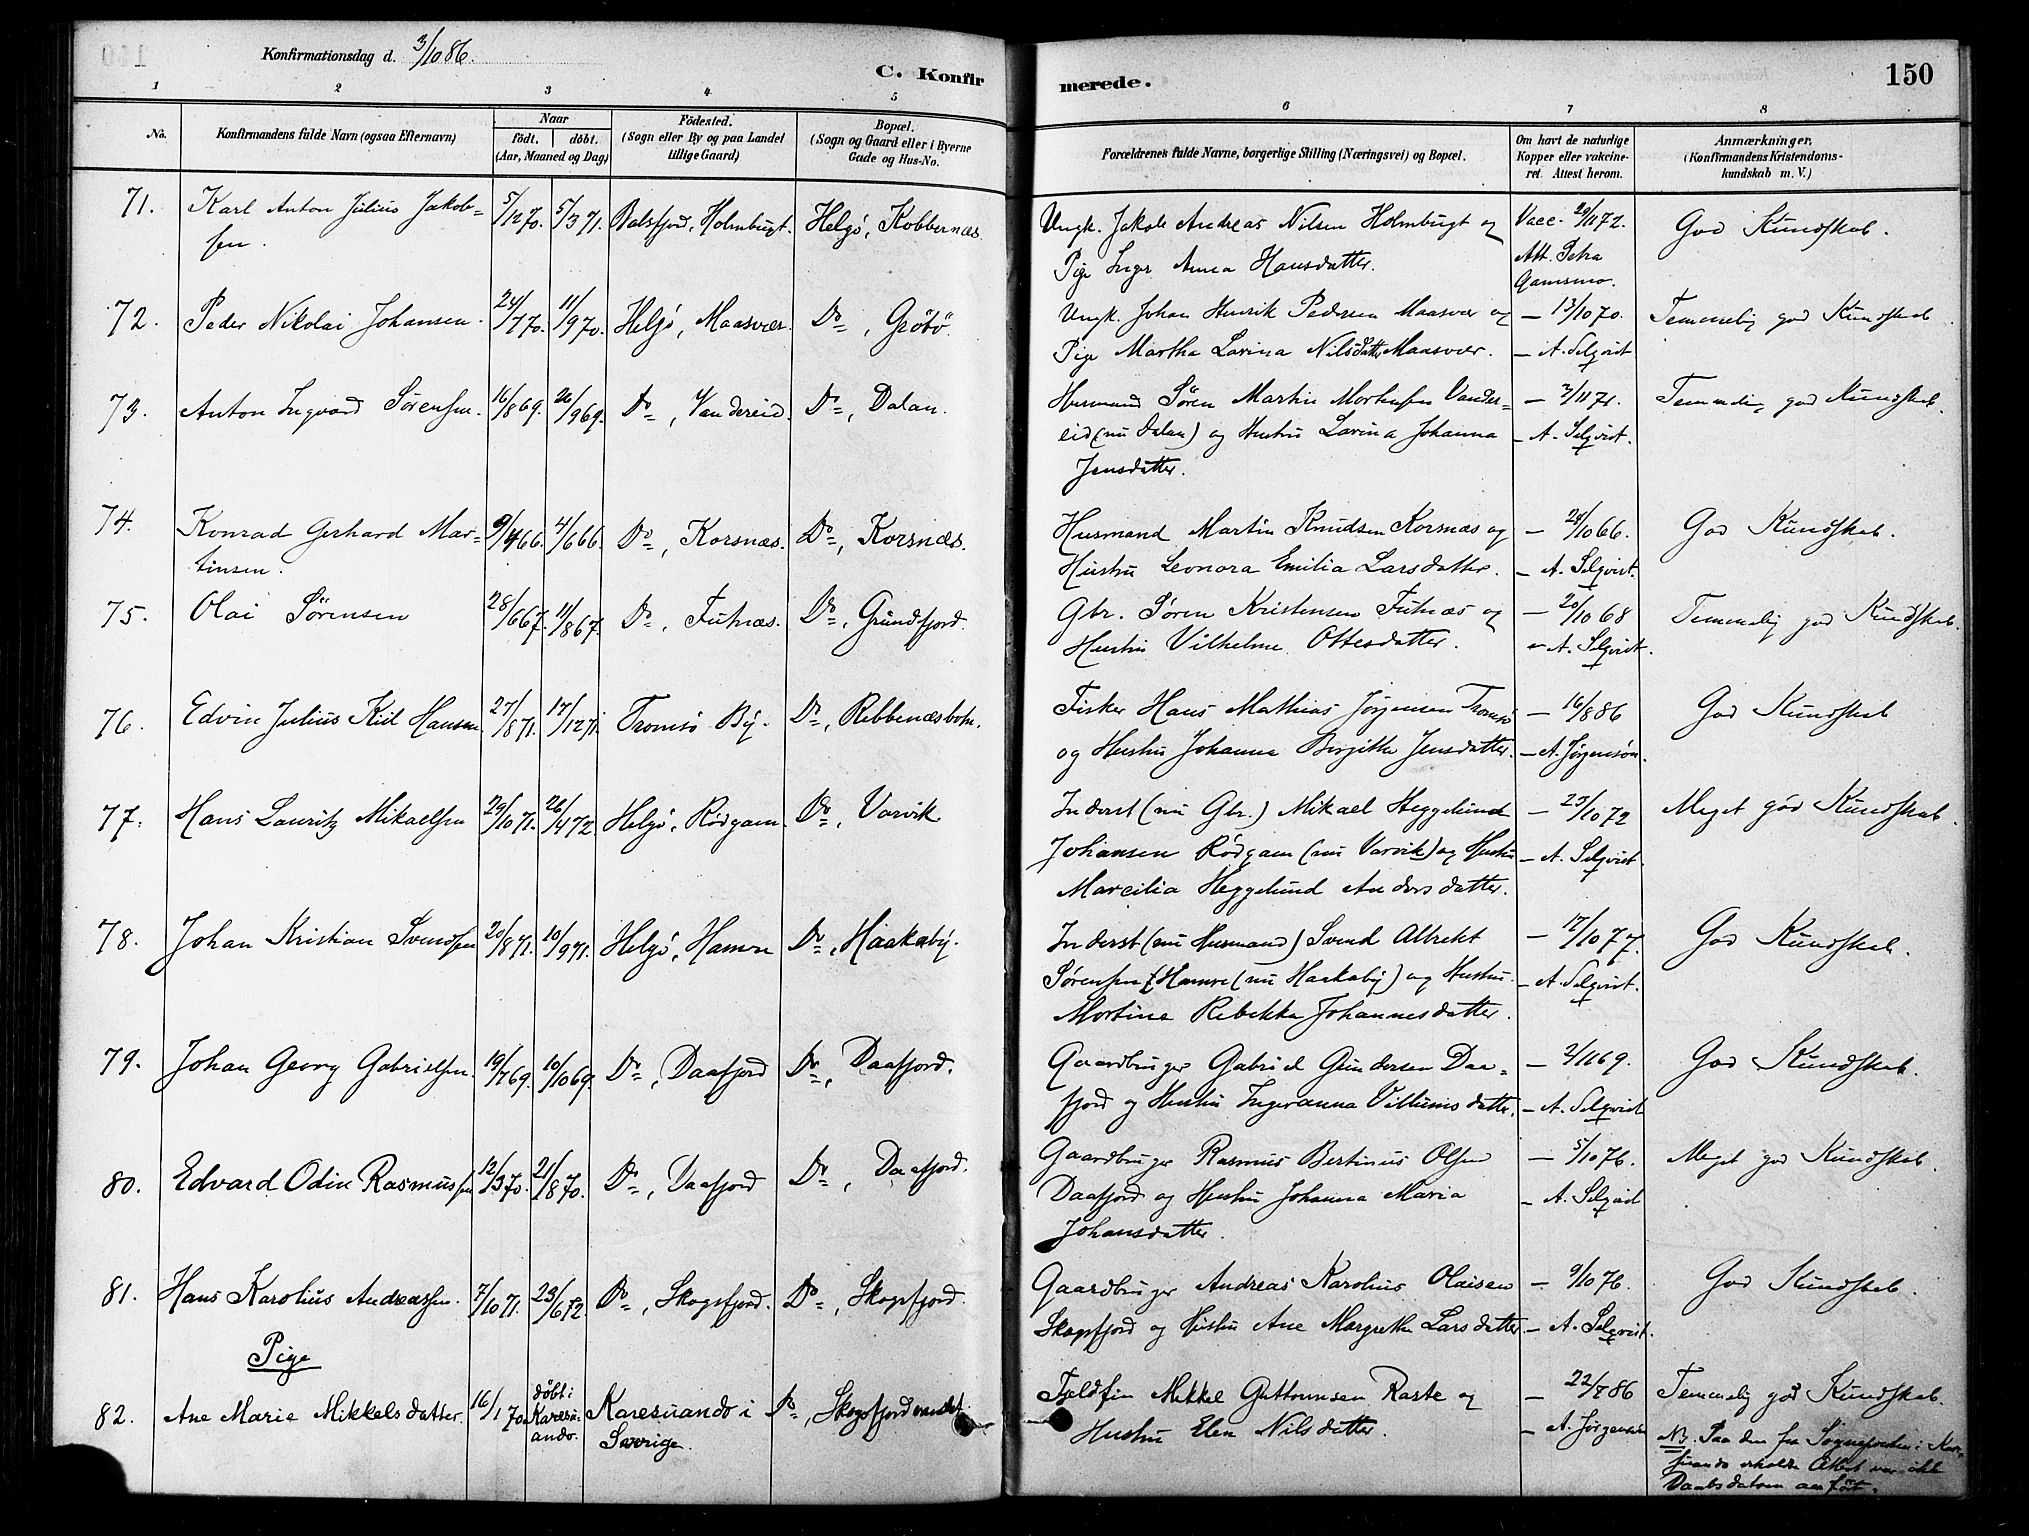 Konfirmationsdag d. 3/10 86.
C. Konfirmerede.
150
1 2 3 4 5 6 7 8
No.
Konfirmandens fulde Navn (ogsaa Efternavn)
Naar
födt. döbt.
(Aar, Maaned og Dag)
Födested.
(Sogn eller By og paa Landet
tillige Gaard)
Bopæl.
(Sogn og Gaard eller i Byerne
Gade og Hus-No.
Forældrenes fulde Navne, borgerlige Stilling (Næringsvei) og Bopæl.
Om havt de naturlige
Kopper eller vakcine-
ret. Attest herom.
Anmærkninger.
(Konfirmandens Kristendoms-
kundskab m. V.)
71. Karl Anton Julius Jakob- 5/12 70. 5/3 71. Balsfjord, Holmbugt. Helgö, Kobbernæs. Ungk. Jakob Andreas Nilsen Holmbugt og Vacc. 29/11 72. God Kundskab.
sen. Pige Inger Anna Hansdatter. Att. Petra
Gamsmo.
72. Peder Nikolai Johansen. 24/7 70. 11/9 70. Helgö, Maasvær. Do, Grötö. Ungk. Johan Henrik Pedersen Maasvær og — 13/10 70. Temmelig god Kundskab
Pige Martha Lavina Nilsdatter Maasvær. — A. Selqvist
73. Anton Ingvard Sörensen. 16/8 69. 26/9 69. Do, Vandereid. Do, Dalan. Husmand Sören Martin Mortensen Vander- — 3/11 71. Temmelig god Kundskab.
eid (nu Dalan) og Hustru Lavina Johanna — A. Selqvist.
Jensdatter.
74. Konrad Gerhard Mar- 9/4 66. 4/6 66. Do, Korsnæs. Do, Korsnæs. Husmand Martin Knudsen Korsnæs og — 24/10 66. God Kundskab.
tinsen. Hustru Leonora Emilia Larsdatter. — A. Selqvist.
75. Olai Sörensen 28/6 67. 11/8 67. Do, Futnæs. Do, Grundfjord. Gbr. Sören Kristensen Futnæs og — 20/10 68 Temmelig god Kundskab.
Hustru Vilhelme Ottesdatter. — A. Selqvist.
76. Edvin Julius Kiil Hansen 27/8 71. 17/12 71. Tromsö By. Do, Ribbenæsbotn. Fisker Hans Mathias Jörgensen Tromsö — 16/8 86 God Kundskab
og Hustru Johanna Birgitte Jensdatter. — A. Jörgensön.
77. Hans Lauritz Mikaelsen 29/10 71. 26/4 72. Helgö, Rödgam. Do, Varvik Inderst (nu Gbr.) Mikael Heggelund — 23/10 72 Meget god Kundskab.
Johansen Rödgam (nu Varvik) og Hustru — A. Selqvist.
Marcilia Heggelund Andersdatter.
78. Johan Kristian Svendsen 20/8 71. 10/9 71. Helgö, Hamre Do, Haakaby. Inderst (nu Husmand) Svend Albrekt — 17/10 77. God Kundskab.
Sörensen Hamre (nu Haakaby) og Hustru — A. Selqvist.
Mortine Rebekka Johannesdatter.
79. Johan Georg Gabrielsen. 19/7 69. 10/10 69. Do, Daafjord Do, Daafjord. Gaardbruger Gabriel Gundersen Daa- — 2/11 69. God Kundskab.
fjord og Hustru Ingeranna Villumsdatter. — A. Selqvist
80. Edvard Odin Rasmussen 12/3 70. 21/8 70. Do, Daafjord Do, Daafjord. Gaardbruger Rasmus Bertinus Olsen — 5/10 76. Meget god Kundskab.
Daafjord og Hustru Johanna Maria — A. Selqvist
Johansdatter.
81. Hans Karolius Andreassen. 7/10 71. 23/6 72. Do, Skogsfjord. Do, Skogsfjord. Gaardbruger Andreas Karolius Olaisen — 9/10 76. God Kundskab.
Skogsfjord og Hustru Ane Margrethe Larsdatter — A. Selqvist.
Pige
82. Ane Marie Mikkelsdatter. 16/1 70. döbt i Karesuando. Karesuando i Sverige. Do, Skogsfjordvandet. Fjeldfin Mikkel Guttormsen Raste og — 22/7 86 Temmelig god Kundskab.
Hustru Elen Nilsdatter. — A. Jörgensen
NB. Paa den fra Sognepresten i Kare-
suando erholdte Attest var ikke
Daabsdatoen anfört.